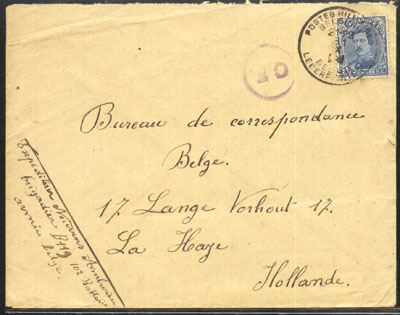 POSTES MILIT
BELG
LEGERPOS
Bureau de correspondance
Belge.
17 Lange Vorhout 17.
La Haye
Hollande.
Expéditeur
brigadier B119
armée belge.